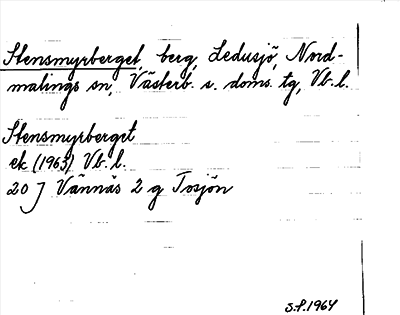 Stensmyrberget, berg, Ledusjö, Nord-
malings sn, Västerb. s. doms. tg, Vb. l.
Stensmyrberget
ek (1963) Vb. l.
20 J Vännäs 2 g Tosjön
S.P. 1964